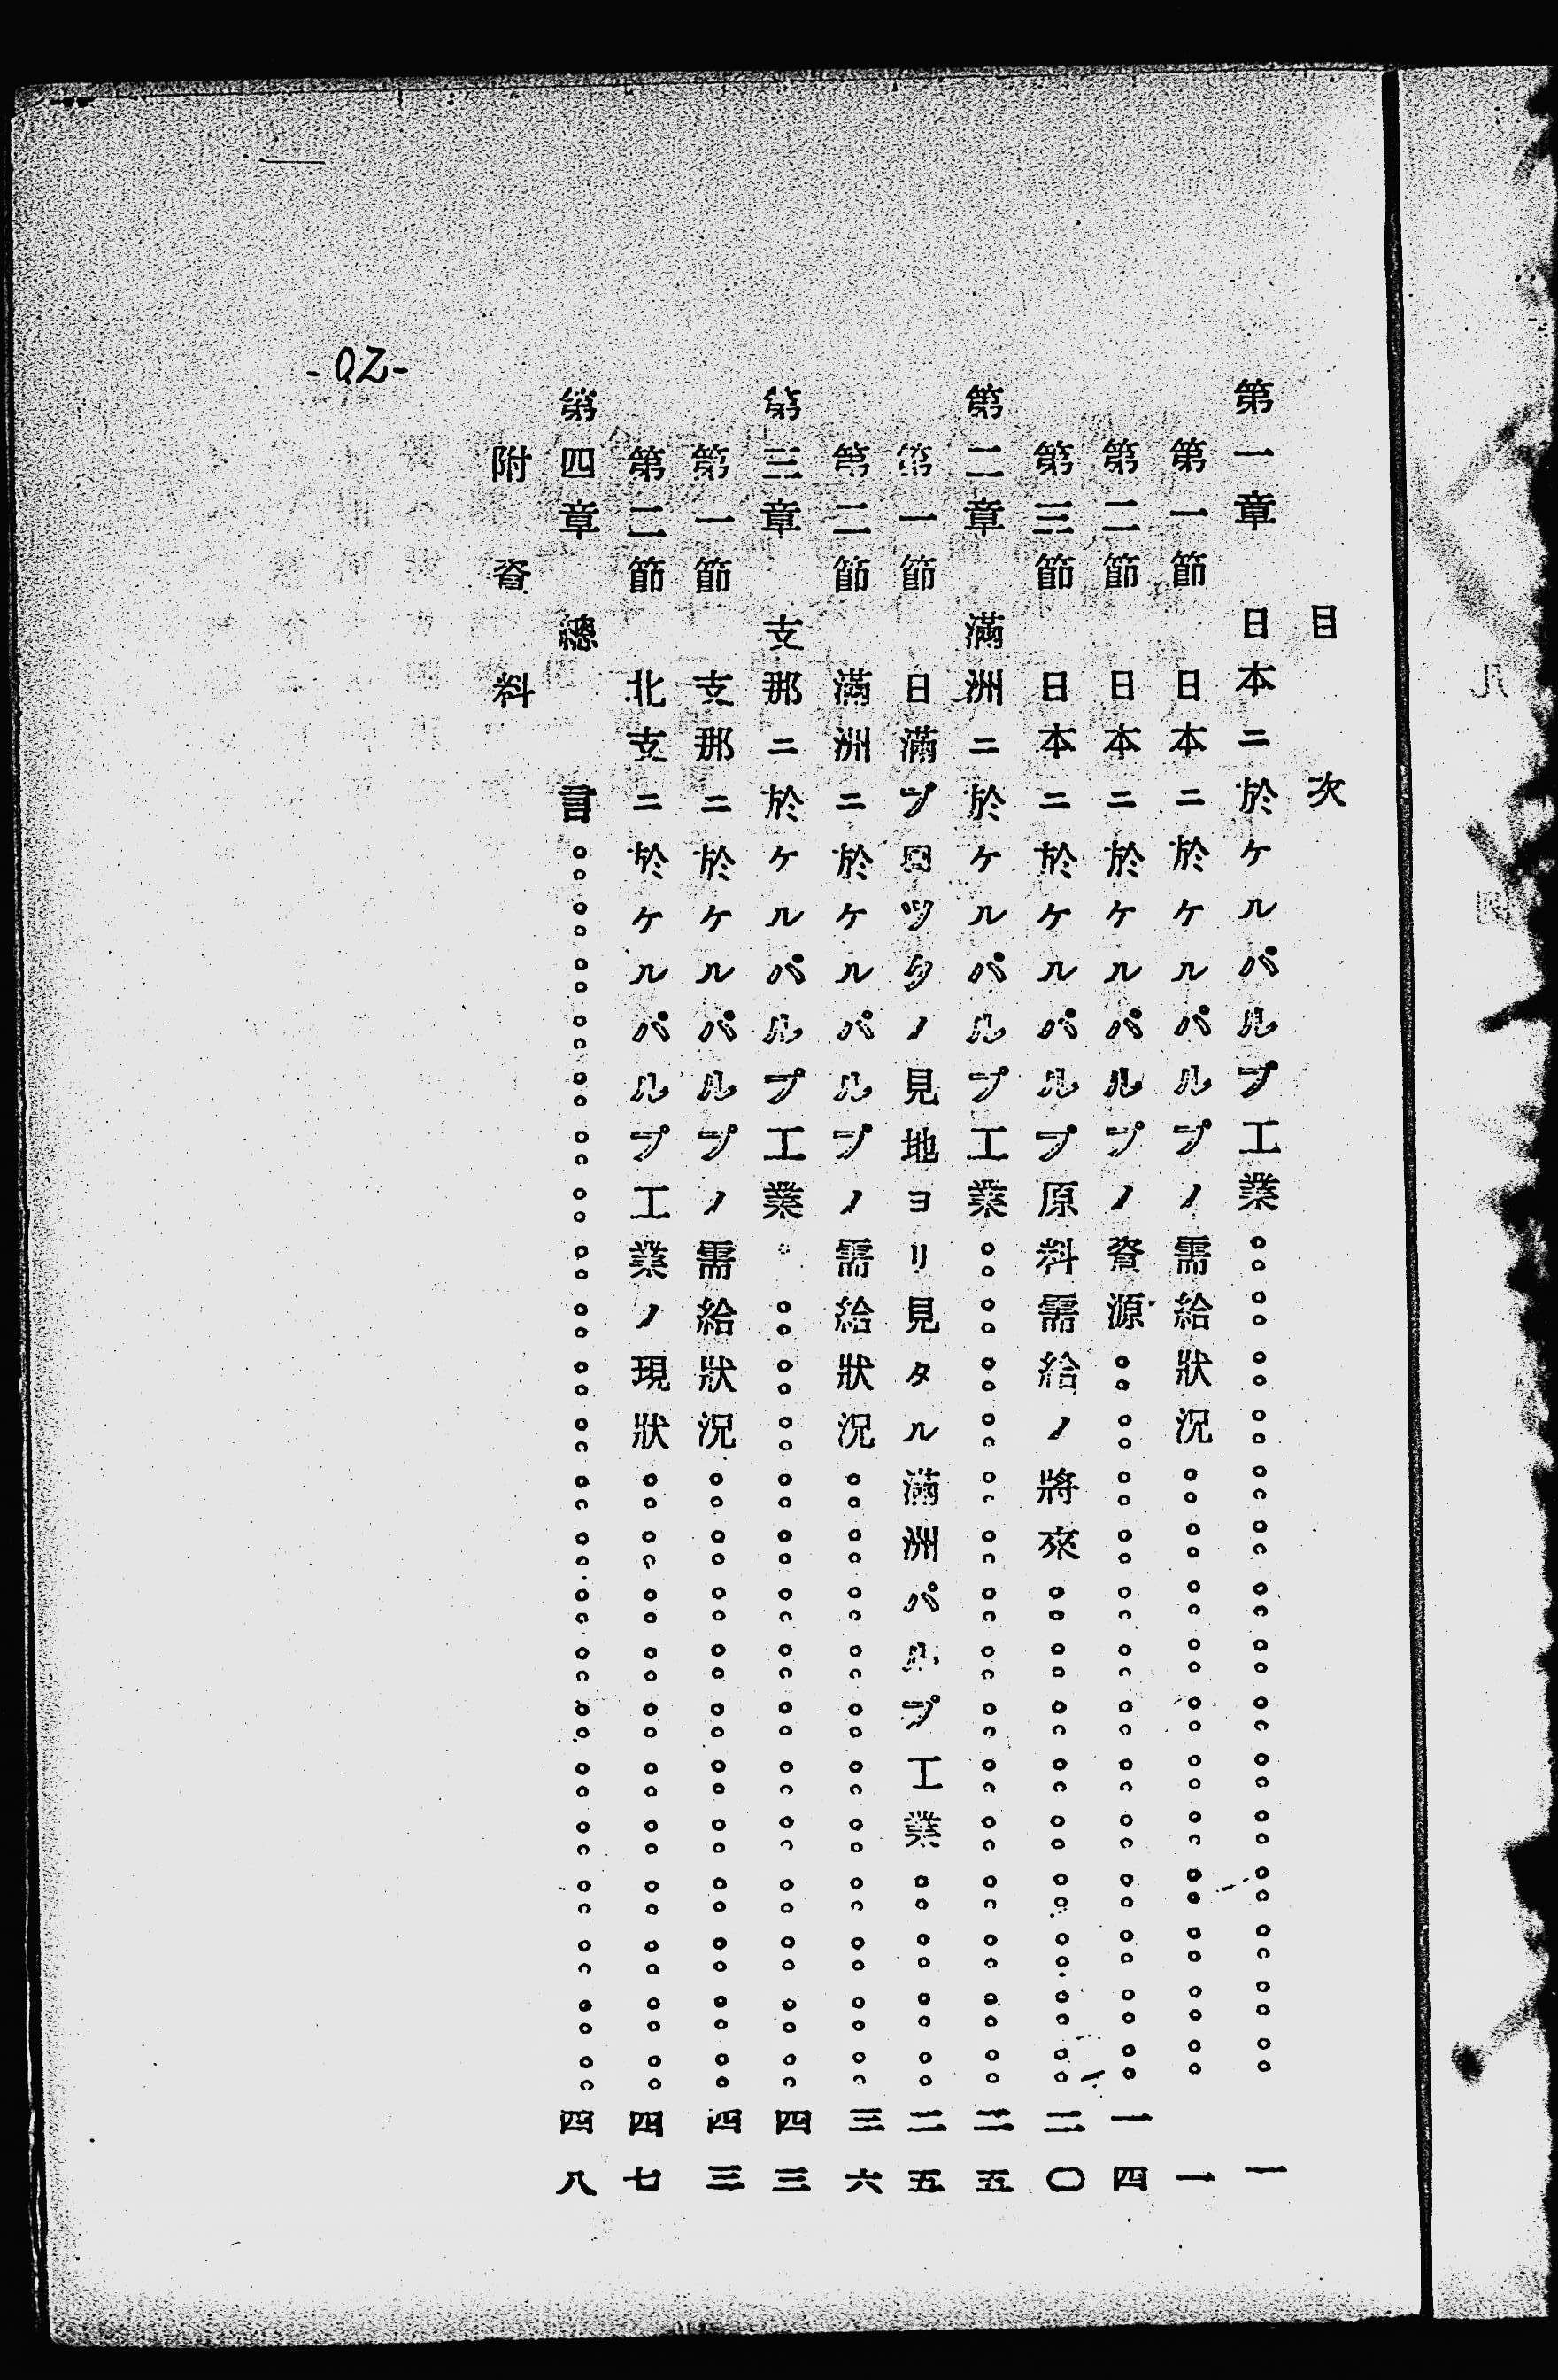 目次
第一章 日本ニ於ケルパルプ工業。。。。。。。。。。。。。。。。。。。。。。。。。。。。。。一
第一節 日本ニ於ケルパルプノ需給狀況。。。。。。。。。。。。。。。。。。。。。。一
第二節 日本ニ於ケルパルプノ資源。。。。。。。。。。。。。。。。。。。。。。。。。。一四
第三節 日本ニ於ケルパルプ原料需給ノ將來。。。。。。。。。。。。。。。。。。二〇
第二章 滿洲ニ於ケルパルプ工業。。。。。。。。。。。。。。。。。。。。。。。。。。。。。。二五
第一節 日滿ブロツクノ見地ヨリ見タル滿洲パルプ工業。。。。。。。。二五
第二節 滿洲ニ於ケルパルプノ需給狀況。。。。。。。。。。。。。。。。。。。。。。三六
第三章 支那ニ於ケルパルプ工業。。。。。。。。。。。。。。。。。。。。。。。。。。。。。四三
第一節 支那ニ於ケルパルプノ需給狀況。。。。。。。。。。。。。。。。。。。。。。四三
第二節 北支ニ於ケルパルプ工業ノ現狀。。。。。。。。。。。。。。。。。。。。。。四七
第四章 總言。。。。。。。。。。。。。。。。。。。。。。。。。。。。。。。。。。。。。。。。。。。。四八
附資料
-02-